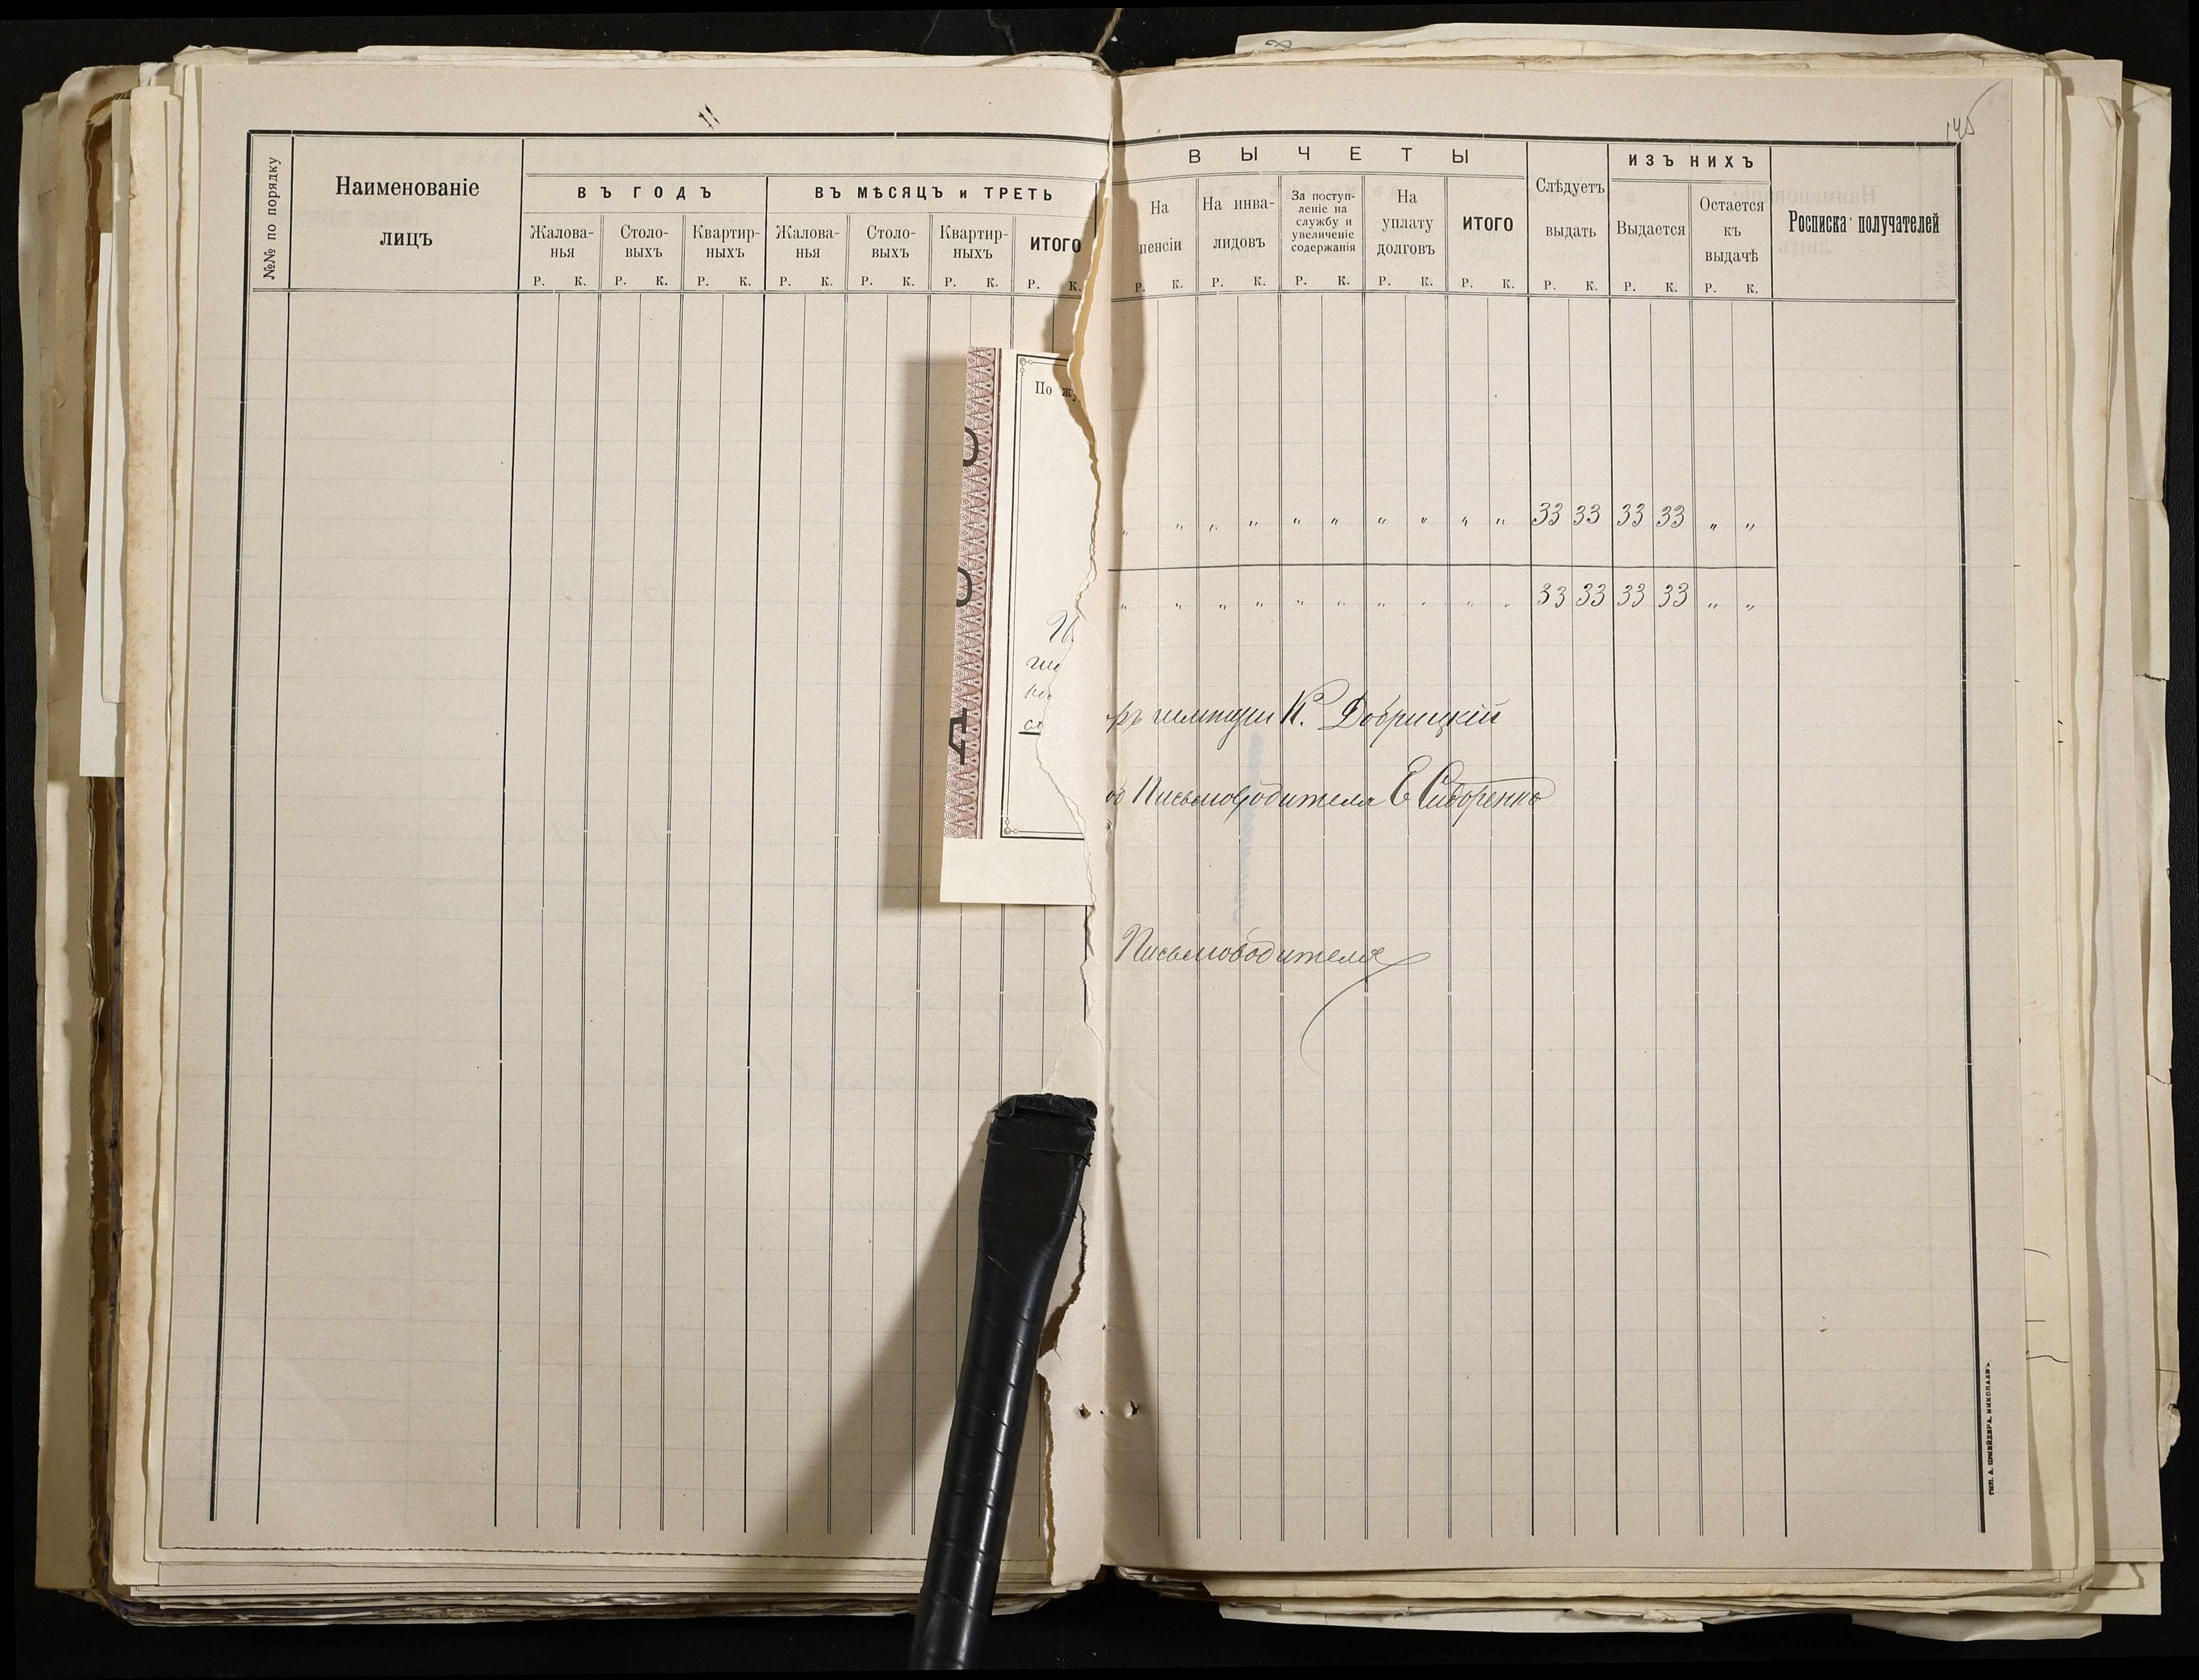 №№ по порядку
Наименованіе
лицъ
ВЪ ГОДЪ
Жалова-
нья
Столо-
выхъ
Квартир-
ныхъ
ВЪ МѢСЯЦЪ и ТРЕТЬ
Жалова-
нья
Столо-
выхъ
Квартир-
ныхъ
ИТОГО
Р. К. Р. К. Р. К. Р. К. Р. К. Р. К. Р. К.
По
145
ВЫЧЕТЫ
На
пенсіи
На инва-
лидовъ
За поступ-
леніе на
службу и
увеличеніе
содержанія
На
уплату
долговъ
ИТОГО
Слѣдуетъ
выдать
ИЗЪ НИХЪ
Выдается
Остается
къ
выдачѣ
Росписка получателей
Р. К. Р. К. Р. К. Р. К. Р. К. Р. К. Р. К. Р. К.
" " " " " " " " " " 33 33 33 33 " "
" " " " " " " " " " 33 33 33 33 " "
ръ гимназіи К. Добрицкій
Письмоводителя Е Сидоренко
Письмоводителя
ТИП. А. ШНЕЙДЕРА, НИКОЛАЕВЪ